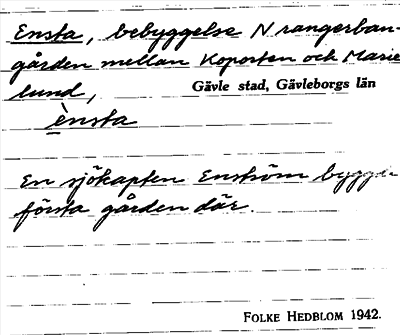 Ensta, bebyggelse N rangerban-
gården mellan Koporten och Marie
lund,
Gävle stad, Gävleborgs län
ènsta
En sjökapten Enström byggde
första gården där.
FOLKE HEDBLOM 1942.